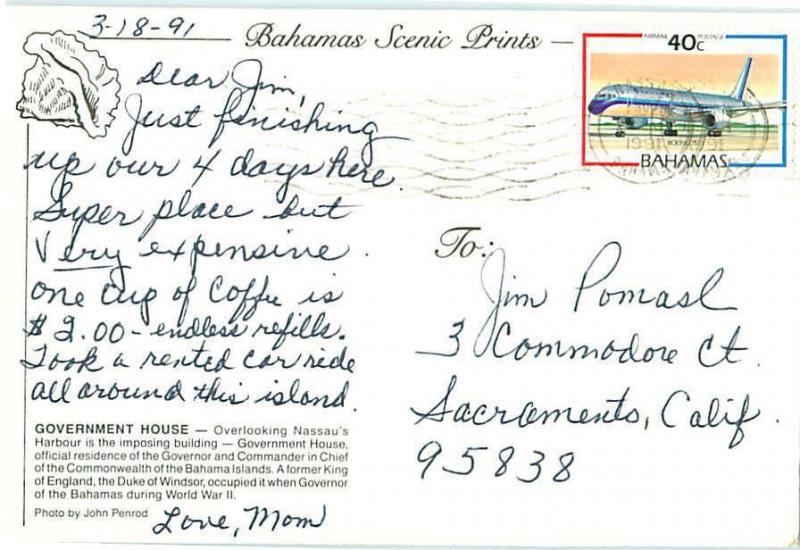 3-18-91
Bahamas Scenic Prints
Dear Jim,
Just finishing
up our 4 days here.
Super place but
Very expensive.
one cup of Coffee is
$2.00 - endless refills.
Took a rented car ride
all around this island.
GOVERNMENT HOUSE — Overlooking Nassau's
Harbour is the imposing building — Government House,
official residence of the Governor and Commander in Chief
of the Commonwealth of the Bahama Islands. A former King
of England, the Duke of Windsor, occupied it when Governor
of the Bahamas during World War II.
Photo by John Penrod
Love, Mom
AIRMAIL POSTAGE
40c
BOEING 757
BAHAMAS
1991
To:
Jim Pomasl
3 Commodore Ct.
Sacramento, Calif.
95838